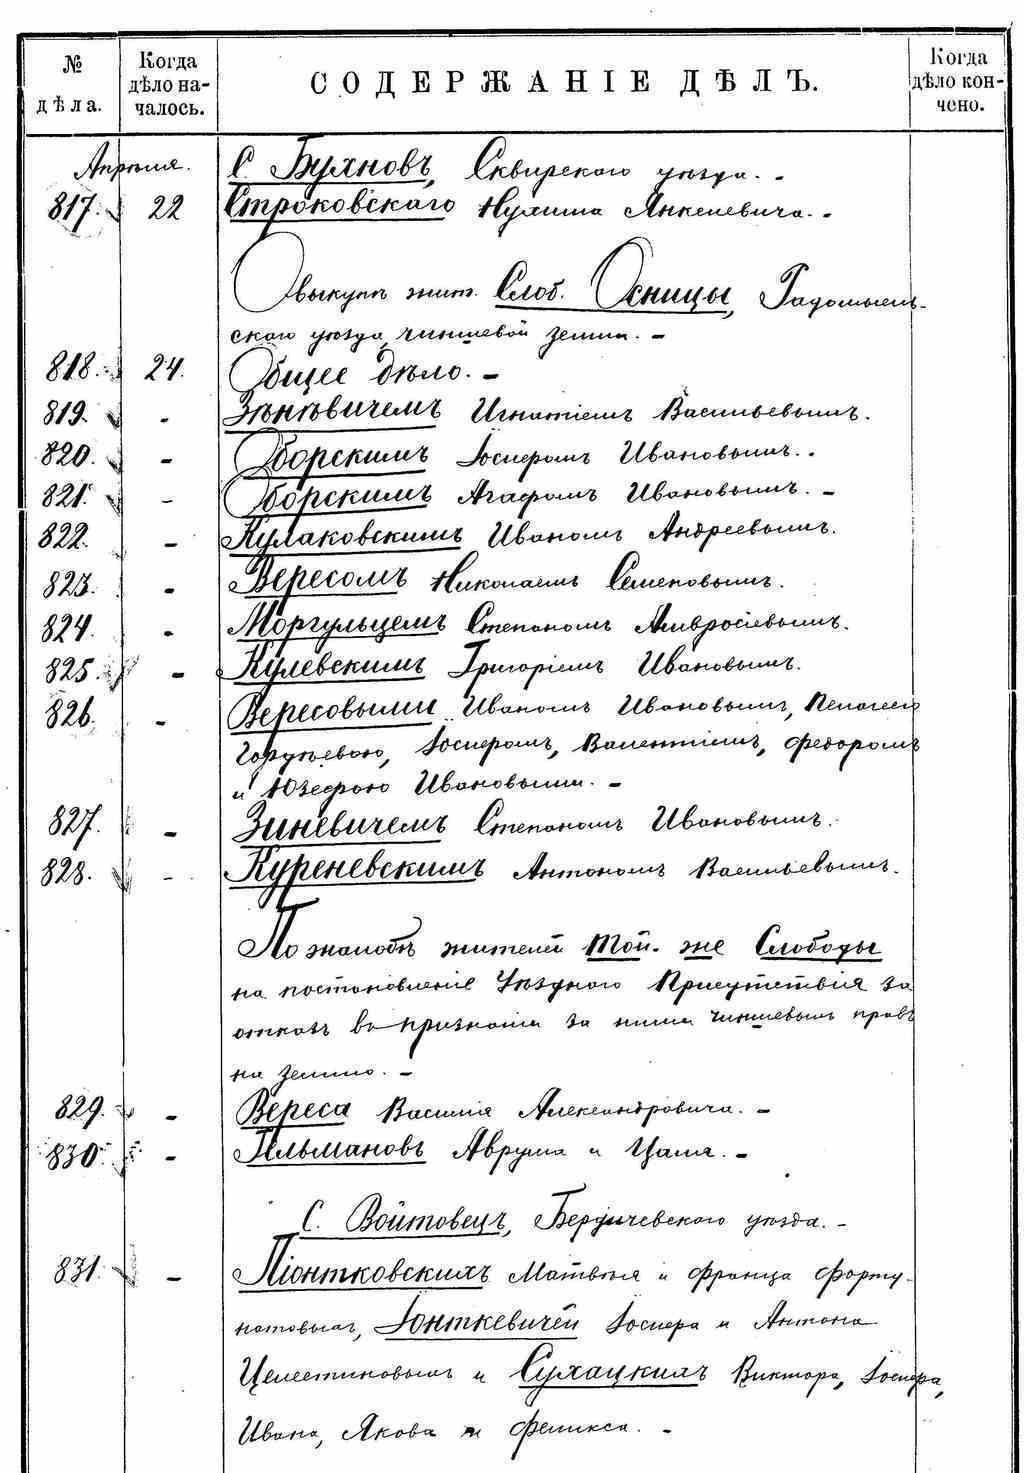 № дѣла. Когда дѣло началось. СОДЕРЖАНІЕ ДѢЛЪ. Когда дѣло кончено.
Апрѣля. С. Буяновъ, Сквирскаго уѣзда. -
817. 22 Строковскаго Нухима Янкелевича. -
О выкупѣ жит. Слоб. Осницы, Радомысль-
скаго уѣзда, чиншевой земли. -
818. 24. Общее дѣло. -
819. - Зѣнѣвичемъ Игнатіемъ Васильевымъ.
820. - Оборскимъ Іосифомъ Ивановымъ. -
821. - Оборскимъ Агафомъ Ивановымъ. -
822. - Кулаковскимъ Иваномъ Андреевымъ.
823. - Вересомъ Николаемъ Семеновымъ.
824. - Моргульцемъ Степаномъ Амвросіевымъ.
825. - Кулевскимъ Григоріемъ Ивановымъ.
826. - Вересовыми Иваномъ Ивановымъ, Пелагеею
Іосифомъ, Валентіемъ, Федоромъ
и Юзефою Ивановыми. -
827. - Зиневичемъ Степаномъ Ивановымъ.
828. - Куреневскимъ Антономъ Васильевымъ.
По жалобѣ жителей той-же Слободы
на постановленіе Уѣзднаго Присутствія за
отказъ въ признаніи за ними чиншевыхъ правъ
на землю. -
829. - Вереса Василія Александровича. -
830. - Гельмановъ Аврума и Цаля. -
С. Войтовецъ, Бердичевскаго уѣзда. -
831. - Піонтковскихъ Матвѣя и Франца Форту-
натовыхъ, Іонткевичей Іосифа и Антона
Целестиновыхъ и Сухацкихъ Виктора, Іосифа,
Ивана, Якова и Феликса. -